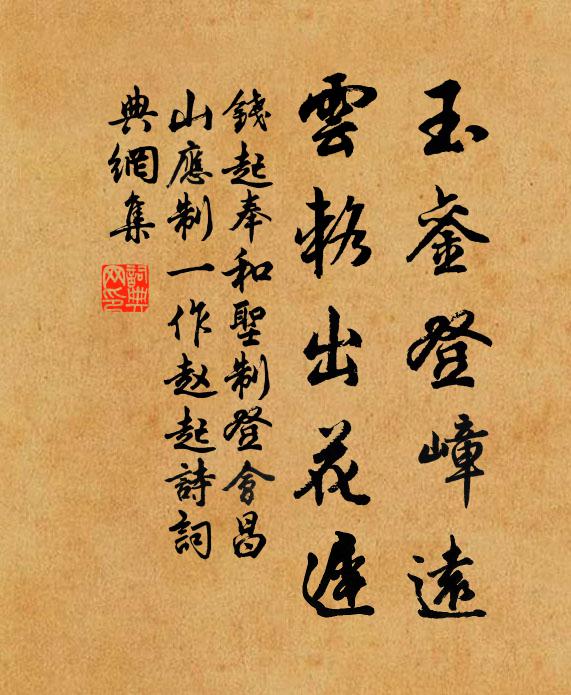 玉銮登嶂遠
雲輅出花遲
錢起奉和聖制登會昌
山應制一作赵起詩詞
典網集
詞典
网印